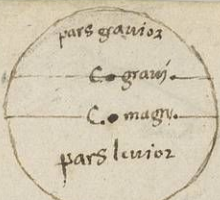 pars grauior
C. graui.
C. magn.
pars leuior